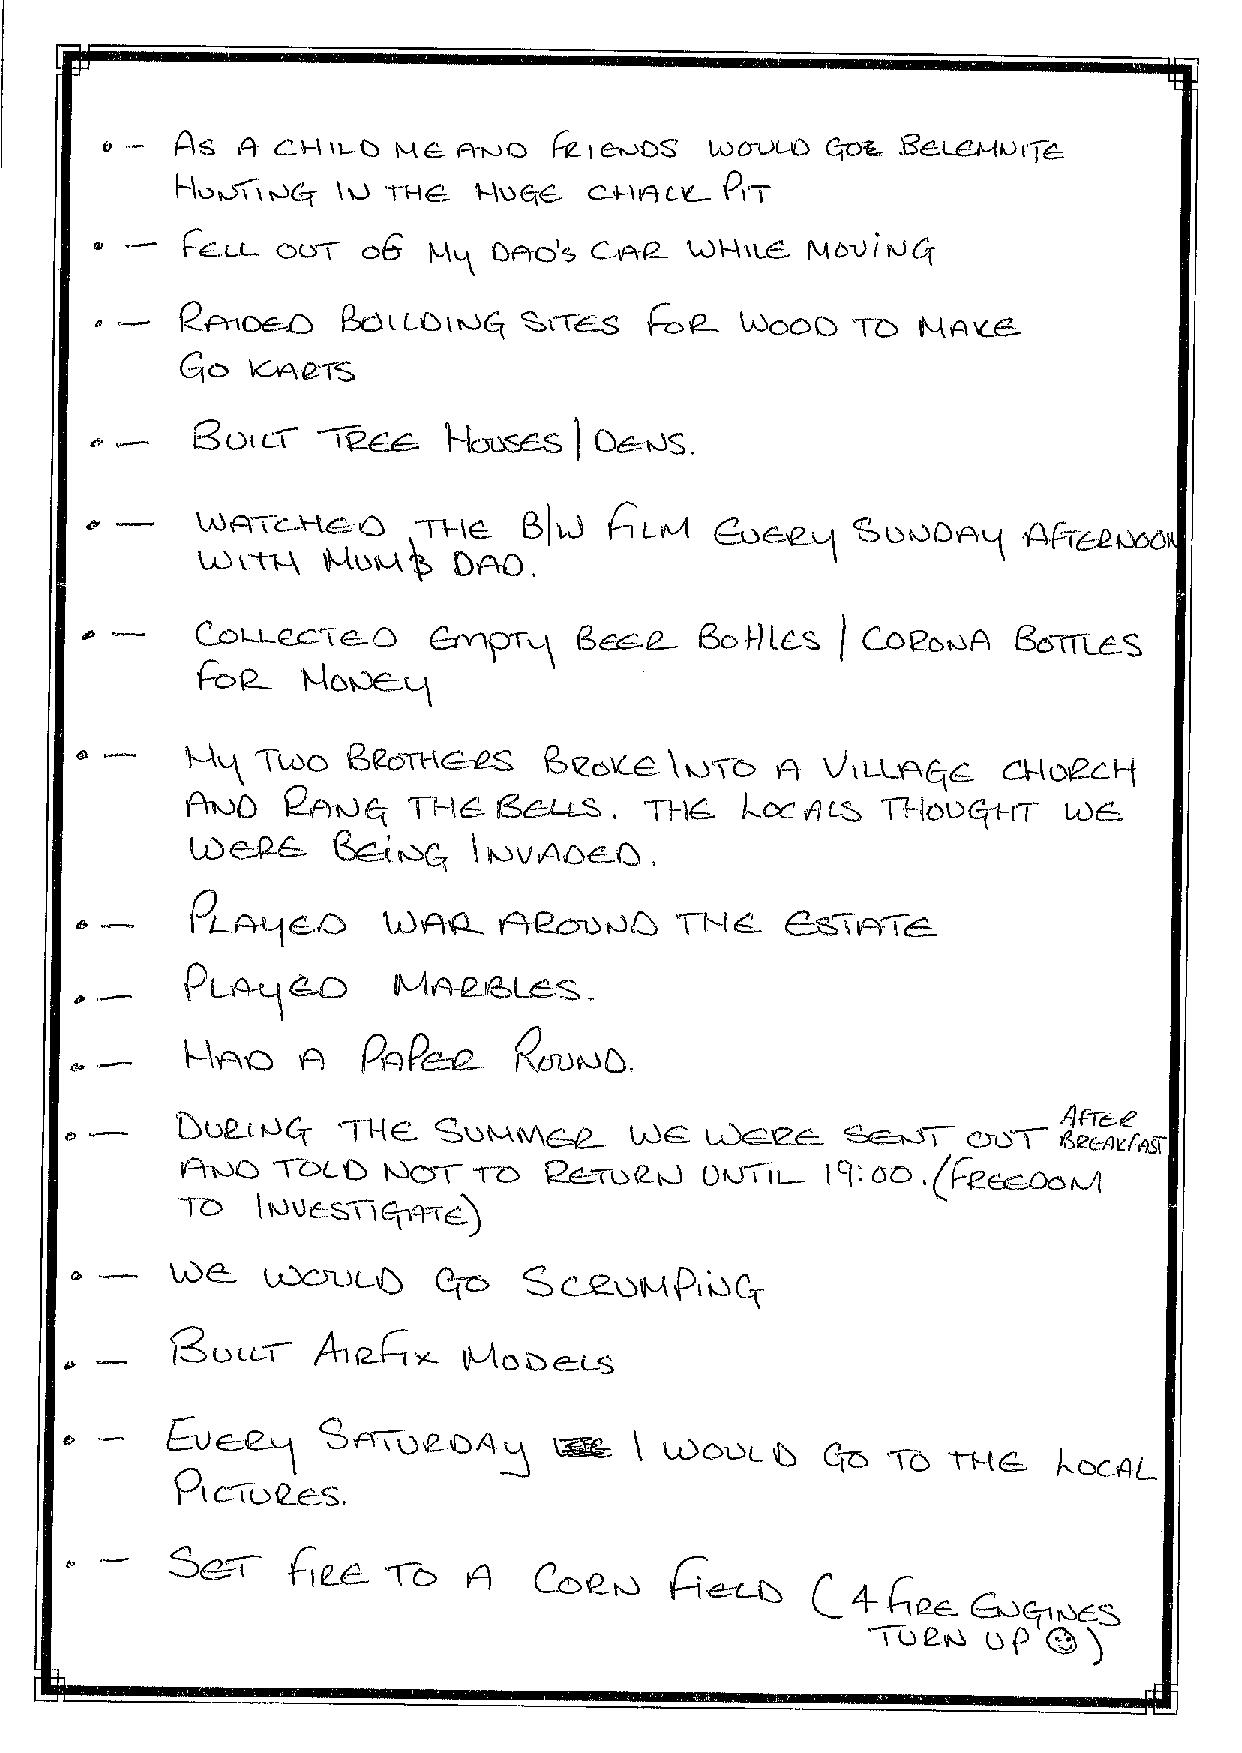 • – As A CHILD ME AND FRIENDS WOULD GO BELEMNITE
HUNTING IN THE HUGE CHALK PIT
• – FELL OUT OF MY DAD'S CAR WHILE MOVING
• – RAIDED BUILDING SITES FOR WOOD TO MAKE
GO KARTS
• – BUILT TREE HOUSES / DENS.
• – WATCHED THE B/W FILM EVERY SUNDAY AFTERNOON
WITH MUM & DAD.
• – COLLECTED EMPTY BEER BOTTLES / CORONA BOTTLES
FOR MONEY
• – MY TWO BROTHERS BROKE INTO A VILLAGE CHURCH
AND RANG THE BELLS. THE LOCALS THOUGHT WE
WERE BEING INVADED.
• – PLAYED WAR AROUND THE ESTATE
• – PLAYED MARBLES.
• – HAD A PAPER ROUND.
• – DURING THE SUMMER WE WERE SENT OUT AFTER BREAKFAST
AND TOLD NOT TO RETURN UNTIL 19:00. (FREEDOM
TO INVESTIGATE)
• – WE WOULD GO SCRUMPING
• – BUILT AIRFIX MODELS
• – EVERY SATURDAY I WOULD GO TO THE LOCAL
PICTURES.
• – SET FIRE TO A CORN FIELD (4 FIRE ENGINES
TURN UP ☺)